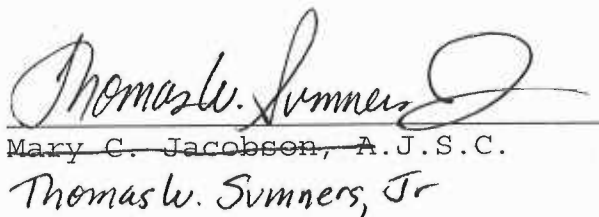 Thomas W. Sumners Jr
Mary C. Jacobson, A.J.S.C.
Thomas W. Sumners, Jr